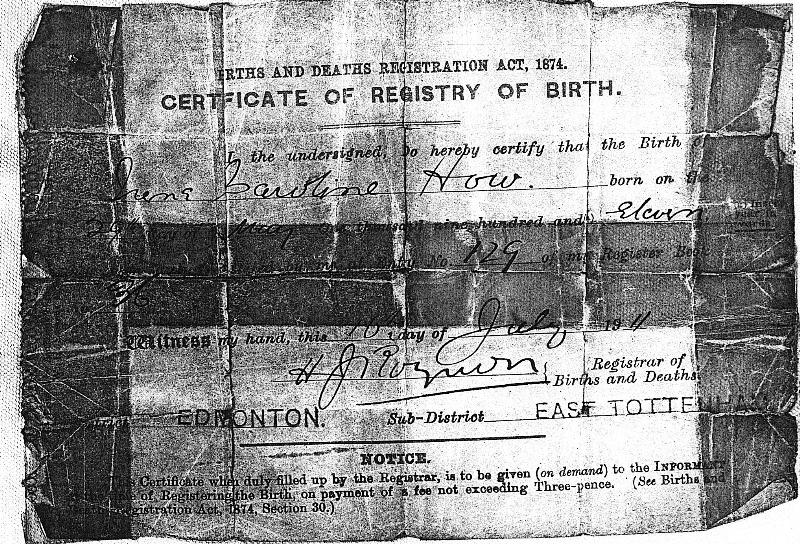 BIRTHS AND DEATHS REGISTRATION ACT, 1874.
CERTIFICATE OF REGISTRY OF BIRTH.
I, the undersigned, Do hereby certify that the Birth of
Irene Caroline How. born on the
May one thousand nine hundred and Eleven
Entry No. 129 of my Register Book
Witness my hand, this 10th day of July 1911
Registrar of
Births and Deaths.
EDMONTON. Sub-District EAST TOTTENHAM
NOTICE.
This Certificate when duly filled up by the Registrar, is to be given (on demand) to the INFORMANT
at the time of Registering the Birth, on payment of a fee not exceeding Three-pence. (See Births and
Deaths Registration Act, 1874, Section 30.)